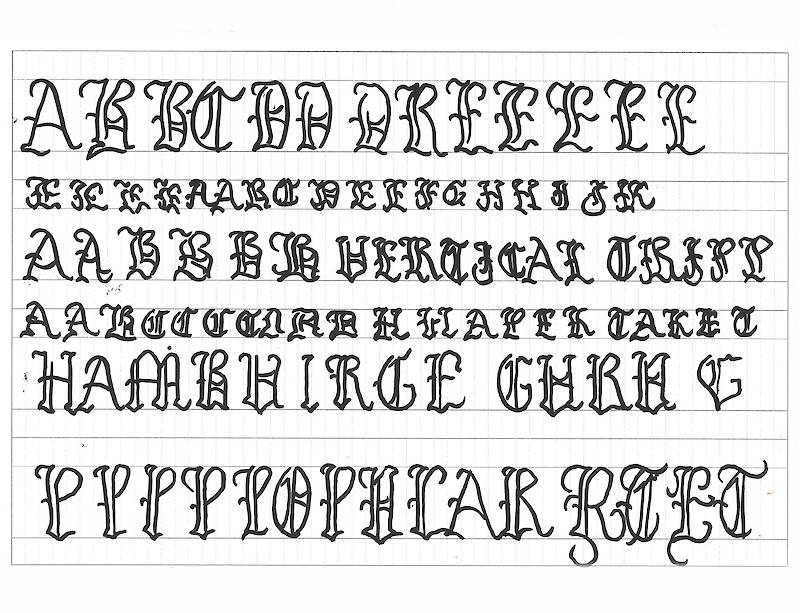 A B B C D D D R E E E E E
E E E E A A B C D E E F G H H I J K
A A B B B B VERTICAL TRIPP
A A B C C C C D D H H A P E R TAKE T
HAMBURGE GURU G
P P P P POPULAR RTET